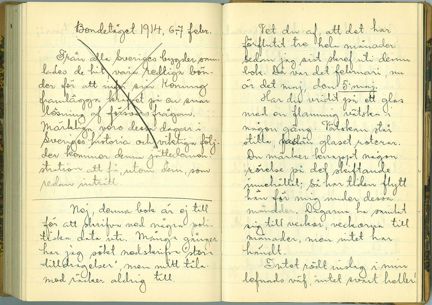 Bondetåget 1914, 6-7 febr.
Från alla Sveriges bygder sam-
lades de till
der för att inför sin Konung
framlägga
lösning af frågan.
Märkliga voro dessa dagar i
Sveriges historia och viktiga följ-
der kommer denna
stration att få, utom dem, som
redan inträtt.
Nej, denna bok är ej till
för att skrifva ned några poli-
tiska data uti. Många gånger
har jag sökt nedskrifva stora
tilldragelser, men mitt tåla-
mod räcker aldrig till
Vet du af, att det har
förflutit tre hela månader
sedan jag sist skref uti denna
bok. Då var det februari, nu
är det maj, den 5 maj.
Har du vridit på ett glas
med en flammig vätska
någon gång. Vätskan står
stilla, glaset roterar.
Du märker knappt någon
rörelse på det skiftande
innehållet. Så har tiden flytt
hän för mig under dessa
månader. Dagarna ha samlat
sig till veckor, veckorna till
månader, men intet har
händt.
Intet rödt inslag i min
lefnads väf, intet svart heller